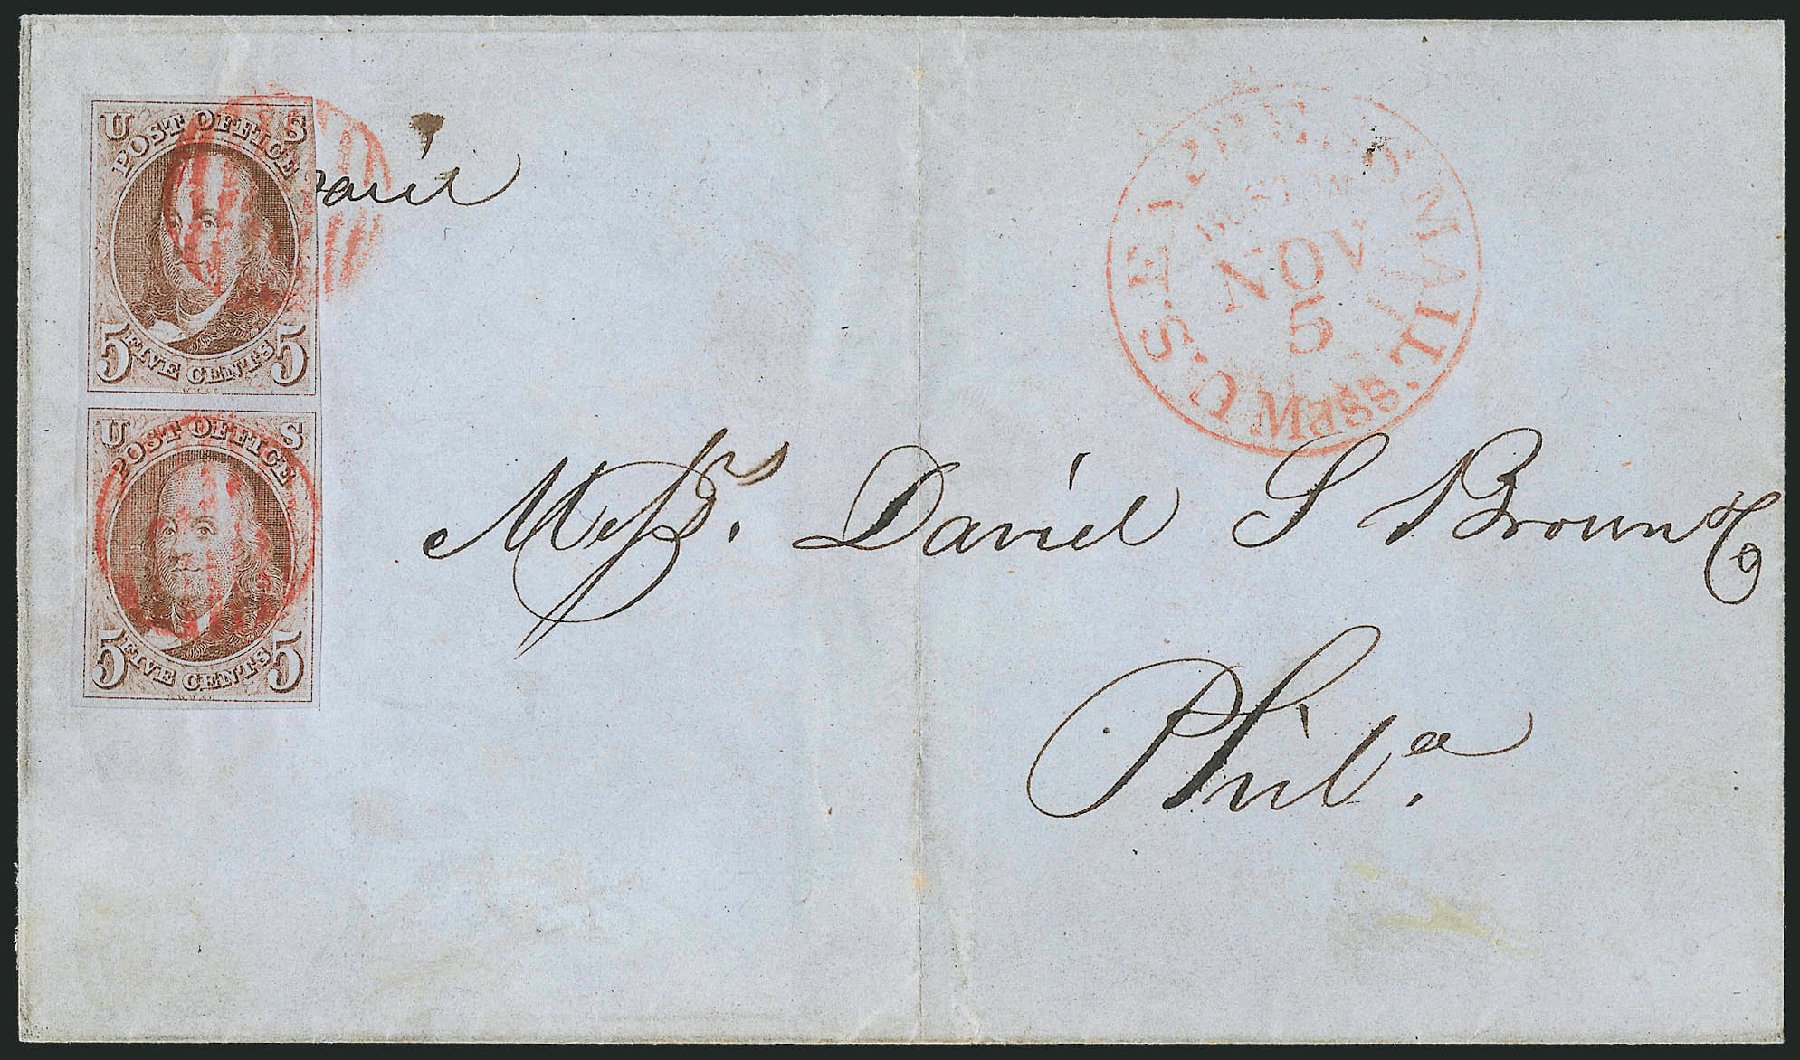 U S
POST OFFICE
5 FIVE CENTS 5
U S
POST OFFICE
5 FIVE CENTS 5
paid
U.S. EXPRESS MAIL
BOSTON
NOV
5
Mass.
Mess.rs Daniel S Brown & Co
Phil.a